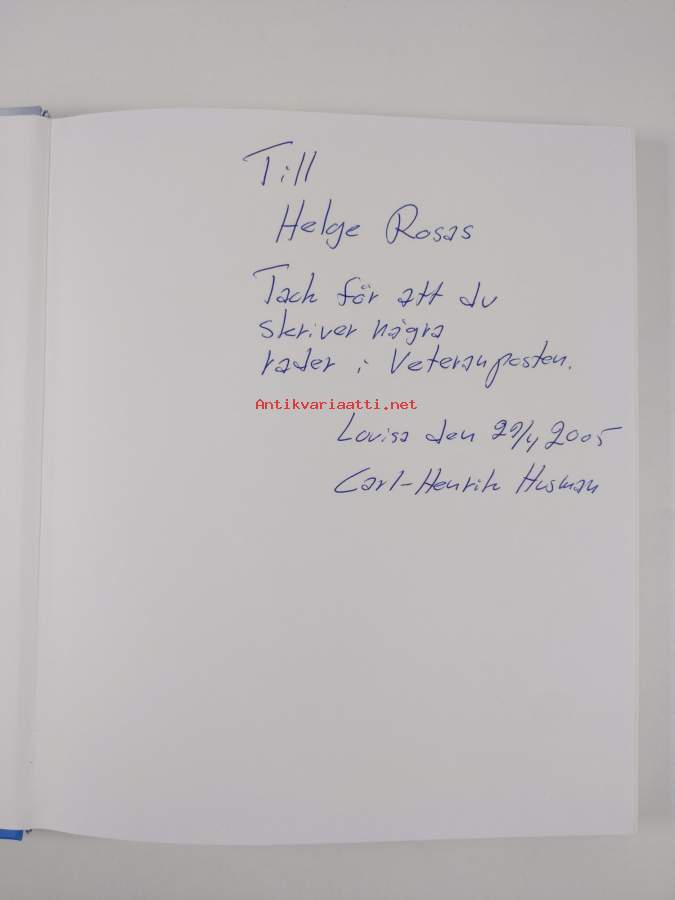 Till
Helge Rosas
Tack för att du
skriver några
rader i Veteranposten.
Antikvariaatti.net
Lovisa den 29/4 2005
Carl-Henrik Husman